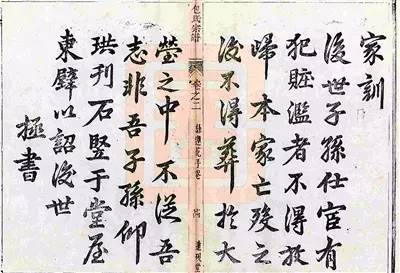 家訓
後世子孫仕宦有
犯賍濫者不得放
歸本家亡歿之
後不得葬於大
包氏宗譜 卷之二
塋之中不從吾
志非吾子孫仰
珙刊石竪于堂屋
東壁以詔後世
拯書